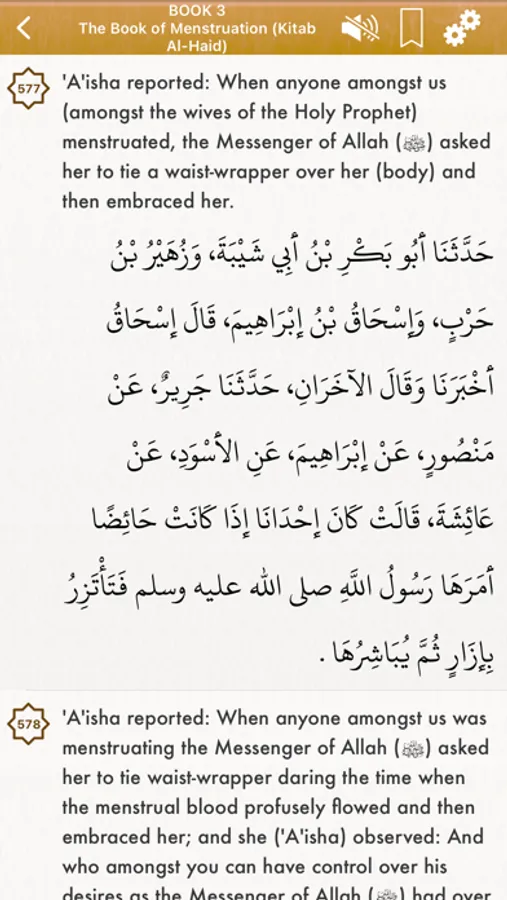 BOOK 3
The Book of Menstruation (Kitab
Al-Haid)
577
'A'isha reported: When anyone amongst us
(amongst the wives of the Holy Prophet)
menstruated, the Messenger of Allah (ﷺ) asked
her to tie a waist-wrapper over her (body) and
then embraced her.
حَدَّثَنَا أَبُو بَكْرِ بْنُ أَبِي شَيْبَةَ، وَزُهَيْرُ بْنُ
حَرْبٍ، وَإِسْحَاقُ بْنُ إِبْرَاهِيمَ، قَالَ إِسْحَاقُ
أَخْبَرَنَا وَقَالَ الآخَرَانِ، حَدَّثَنَا جَرِيرٌ، عَنْ
مَنْصُورٍ، عَنْ إِبْرَاهِيمَ، عَنِ الأَسْوَدِ، عَنْ
عَائِشَةَ، قَالَتْ كَانَ إِحْدَانَا إِذَا كَانَتْ حَائِضًا
أَمَرَهَا رَسُولُ اللَّهِ صلى الله عليه وسلم فَتَأْتَزِرُ
بِإِزَارٍ ثُمَّ يُبَاشِرُهَا .
578
'A'isha reported: When anyone amongst us was
menstruating the Messenger of Allah (ﷺ) asked
her to tie waist-wrapper daring the time when
the menstrual blood profusely flowed and then
embraced her; and she ('A'isha) observed: And
who amongst you can have control over his
desires as the Messenger of Allah (ﷺ) had over